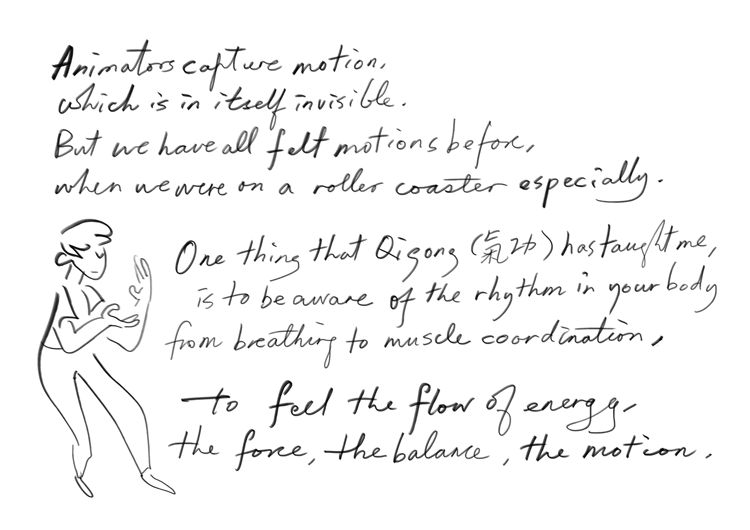 Animators capture motion,
which is in itself invisible.
But we have all felt motions before,
when we were on a roller coaster especially.
One thing that Qigong (氣功) has taught me,
is to be aware of the rhythm in your body
from breathing to muscle coordination,
to feel the flow of energy,
the force, the balance, the motion.